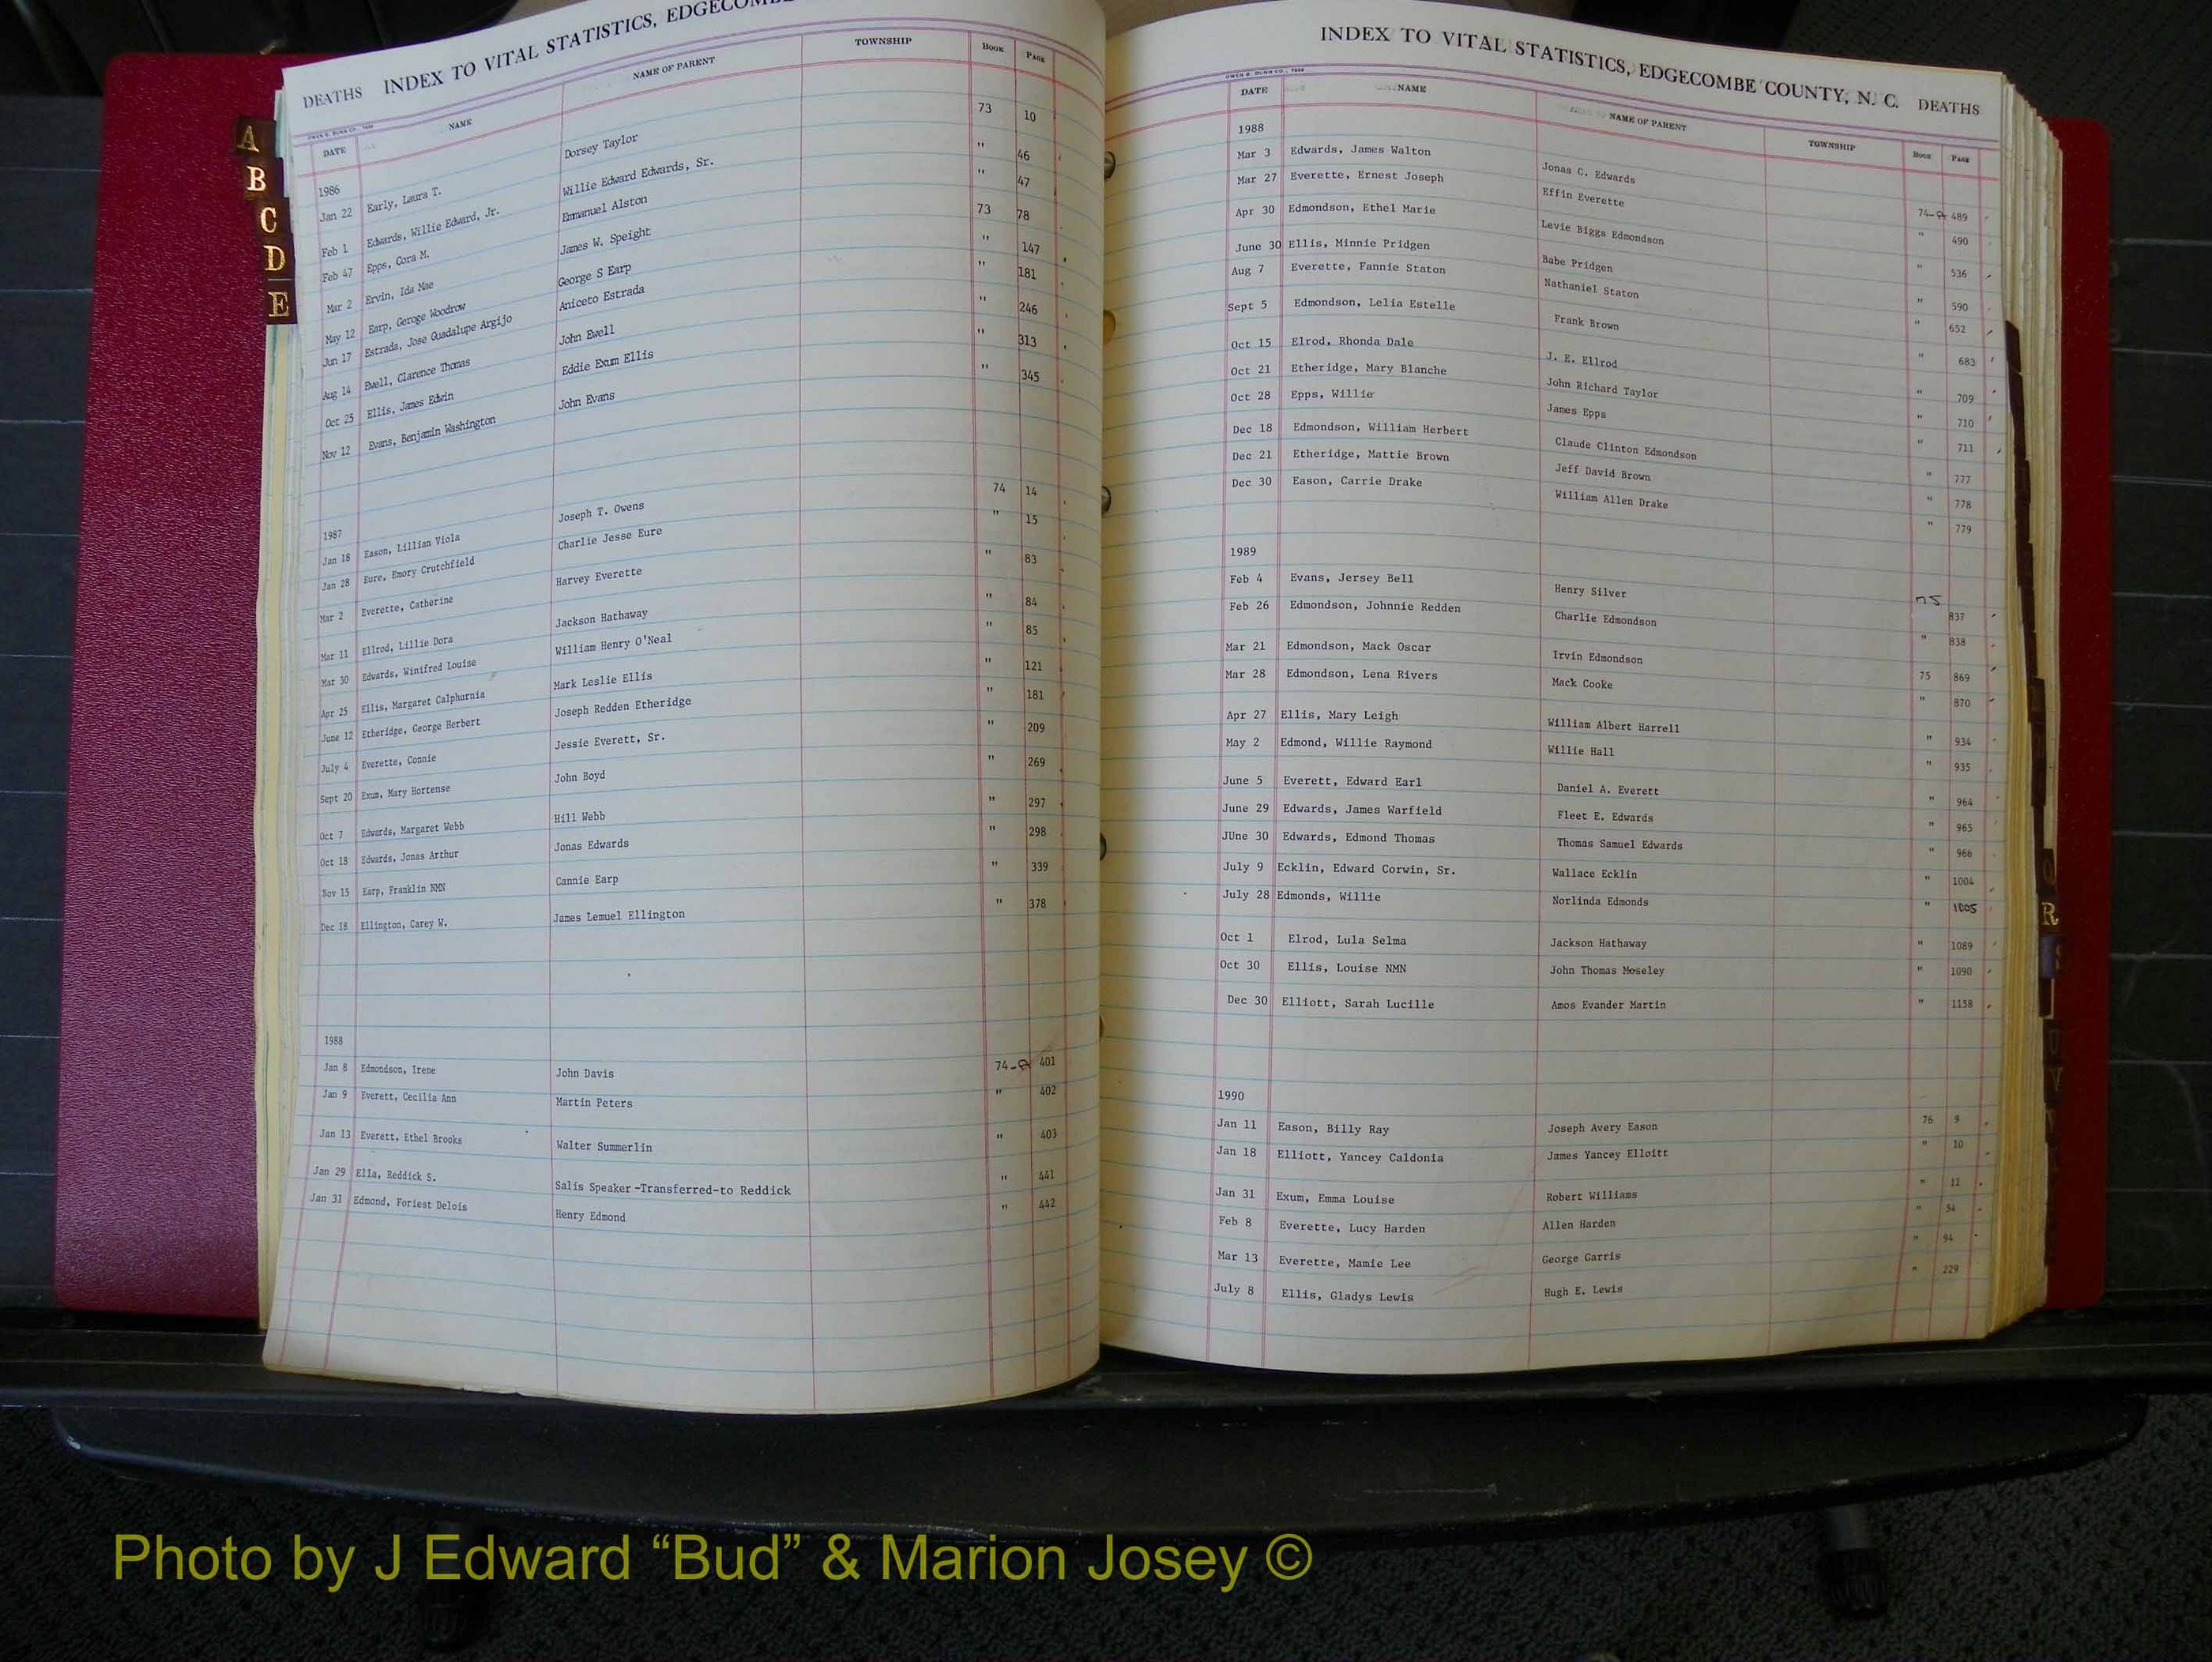 A
B
C
D
E
DEATHS INDEX TO VITAL STATISTICS, EDGECOMBE
OWEN G. DUNN CO.
DATE NAME NAME OF PARENT TOWNSHIP BOOK PAGE
1986
Jan 22 Early, Laura T. Dorsey Taylor 73 10
Feb 1 Edwards, Willie Edward, Jr. Willie Edward Edwards, Sr. " 46
Feb 47 Epps, Cora M. Emmanuel Alston " 47
Mar 2 Ervin, Ida Mae James W. Speight 73 78
May 12 Earp, Geroge Woodrow George S Earp " 147
Jun 17 Estrada, Jose Guadalupe Argijo Aniceto Estrada " 181
Aug 14 Ewell, Clarence Thomas John Ewell " 246
Oct 25 Ellis, James Edwin Eddie Exum Ellis " 313
Nov 12 Evans, Benjamin Washington John Evans " 345
1987
Jan 18 Eason, Lillian Viola Joseph T. Owens 74 14
Jan 28 Eure, Emory Crutchfield Charlie Jesse Eure " 15
Mar 2 Everette, Catherine Harvey Everette " 83
Mar 11 Ellrod, Lillie Dora Jackson Hathaway " 84
Mar 30 Edwards, Winifred Louise William Henry O'Neal " 85
Apr 25 Ellis, Margaret Calphurnia Mark Leslie Ellis " 121
June 12 Etheridge, George Herbert Joseph Redden Etheridge " 181
July 4 Everette, Connie Jessie Everett, Sr. " 209
Sept 20 Exum, Mary Hortense John Boyd " 269
Oct 7 Edwards, Margaret Webb Hill Webb " 297
Oct 18 Edwards, Jonas Arthur Jonas Edwards " 298
Nov 15 Earp, Franklin NMN Cannie Earp " 339
Dec 18 Ellington, Carey W. James Lemuel Ellington " 378
1988
Jan 8 Edmondson, Irene John Davis 74-A 401
Jan 9 Everett, Cecilia Ann Martin Peters " 402
Jan 13 Everett, Ethel Brooks Walter Summerlin " 403
Jan 29 Ella, Reddick S. Salis Speaker -Transferred-to Reddick " 441
Jan 31 Edmond, Foriest Delois Henry Edmond " 442
INDEX TO VITAL STATISTICS, EDGECOMBE COUNTY, N. C. DEATHS
OWEN G. DUNN CO.
DATE NAME NAME OF PARENT TOWNSHIP BOOK PAGE
1988
Mar 3 Edwards, James Walton Jonas C. Edwards 74-A 489
Mar 27 Everette, Ernest Joseph Effin Everette " 490
Apr 30 Edmondson, Ethel Marie Levie Biggs Edmondson " 536
June 30 Ellis, Minnie Pridgen Babe Pridgen " 590
Aug 7 Everette, Fannie Staton Nathaniel Staton " 652
Sept 5 Edmondson, Lelia Estelle Frank Brown " 683
Oct 15 Elrod, Rhonda Dale J. E. Ellrod " 709
Oct 21 Etheridge, Mary Blanche John Richard Taylor " 710
Oct 28 Epps, Willie James Epps " 711
Dec 18 Edmondson, William Herbert Claude Clinton Edmondson " 777
Dec 21 Etheridge, Mattie Brown Jeff David Brown " 778
Dec 30 Eason, Carrie Drake William Allen Drake " 779
1989
Feb 4 Evans, Jersey Bell Henry Silver 75 837
Feb 26 Edmondson, Johnnie Redden Charlie Edmondson " 838
Mar 21 Edmondson, Mack Oscar Irvin Edmondson 75 869
Mar 28 Edmondson, Lena Rivers Mack Cooke " 870
Apr 27 Ellis, Mary Leigh William Albert Harrell " 934
May 2 Edmond, Willie Raymond Willie Hall " 935
June 5 Everett, Edward Earl Daniel A. Everett " 964
June 29 Edwards, James Warfield Fleet E. Edwards " 965
JUne 30 Edwards, Edmond Thomas Thomas Samuel Edwards " 966
July 9 Ecklin, Edward Corwin, Sr. Wallace Ecklin " 1004
July 28 Edmonds, Willie Norlinda Edmonds " 1005
Oct 1 Elrod, Lula Selma Jackson Hathaway " 1089
Oct 30 Ellis, Louise NMN John Thomas Moseley " 1090
Dec 30 Elliott, Sarah Lucille Amos Evander Martin " 1158
1990
Jan 11 Eason, Billy Ray Joseph Avery Eason 76 9
Jan 18 Elliott, Yancey Caldonia James Yancey Elloitt " 10
Jan 31 Exum, Emma Louise Robert Williams " 11
Feb 8 Everette, Lucy Harden Allen Harden " 34
Mar 13 Everette, Mamie Lee George Garris " 94
July 8 Ellis, Gladys Lewis Hugh E. Lewis " 229
Q
R
S
U
V
Photo by J Edward “Bud” & Marion Josey ©